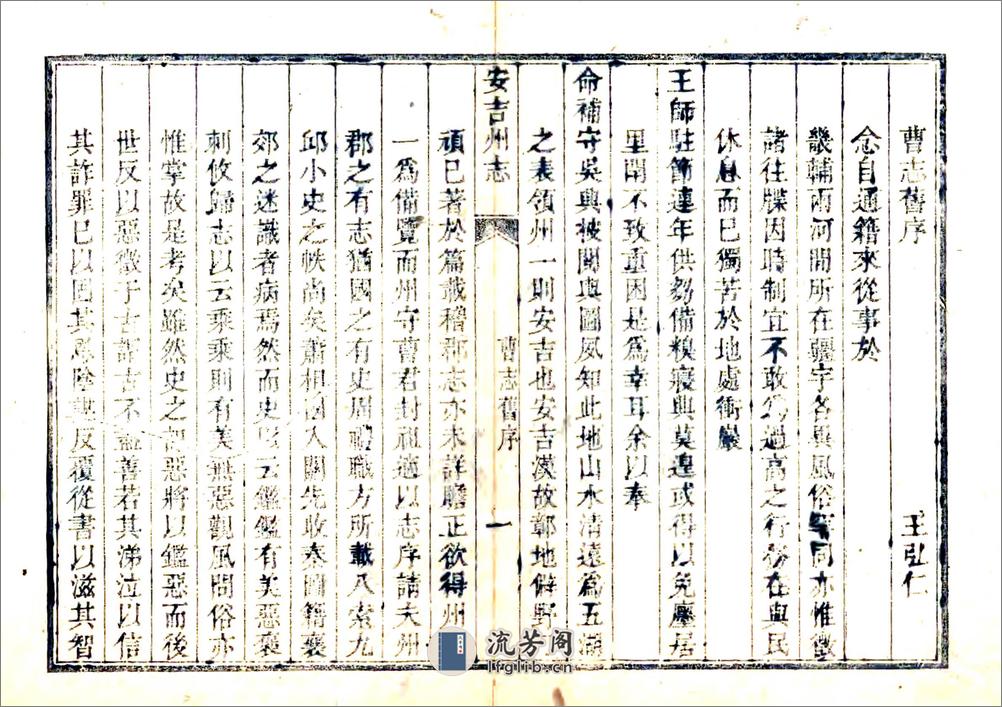 曹志舊序
王弘仁
念自通籍來從事於
畿輔兩河間所在疆宇各異風俗不同亦惟徵
諸往牒因時制宜不敢爲過高之行務在與民
休息而已獨苦於地處衝嚴
王師駐節連年供芻備糗寢興莫遑或得以免廬居
里閈不致重困是爲幸耳余以奉
命補守吳興披閱輿圖夙知此地山水清遠爲五湖
之表領州一則安吉也安吉漢故鄣地僻野
安吉州志
曹志舊序
一
頑已著於篇載稽郡志亦未詳贍正欲得州
一爲備覽而州守曹君封祖適以志序請夫州
郡之有志猶國之有史周禮職方所載八索九
邱小史之帙尚矣蕭相國入關先收秦圖籍褒
郊之迷識者病焉然而史以云鑑鑑有美惡褒
刺攸歸志以云乘乘則有美無惡觀風問俗亦
惟掌故是考矣雖然史之記惡將以鑑惡而後
世反以惡徵于古謂古不盡善若其涕泣以信
其詐罪已以固其恩陰 反覆從書以滋其智
流芳阁
lfglib.cn